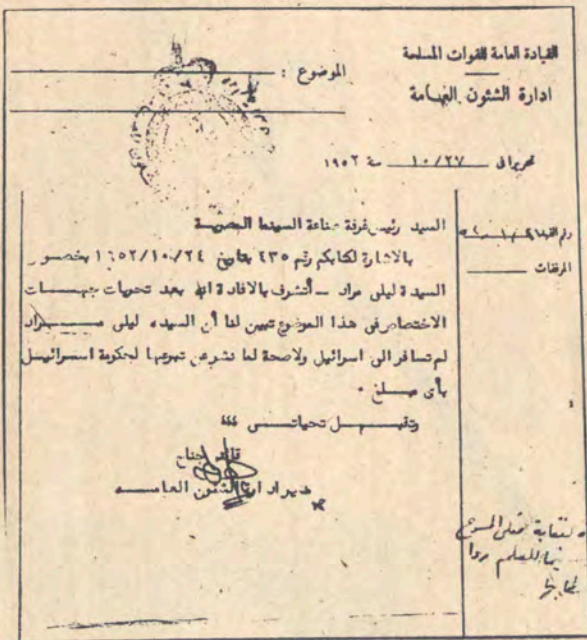 القيادة العامة للقوات المسلحة
ادارة الشئون العامة
الموضوع :
تحريرا فى ١٠/٢٧ سنة ١٩٥٢
رقم القيد
المرفقات
السيد رئيس غرفة صناعة السينما المصرية
بالاشارة لكتابكم رقم ٤٣٥ بتاريخ ١٩٥٢/١٠/٢٤ بخصوص
السيدة ليلى مراد - أتشرف بالافادة انه بعد تحريات جهات
الاختصاص فى هذا الموضوع تبين لنا أن السيده ليلى مراد
لم تسافر الى اسرائيل ولاصحة لما نشر عن تبرعها لحكومة اسرائيل
بأى مبلغ .
وتقبل تحياتى ،،،
قائد جناح
مدير ادارة الشئون العامه